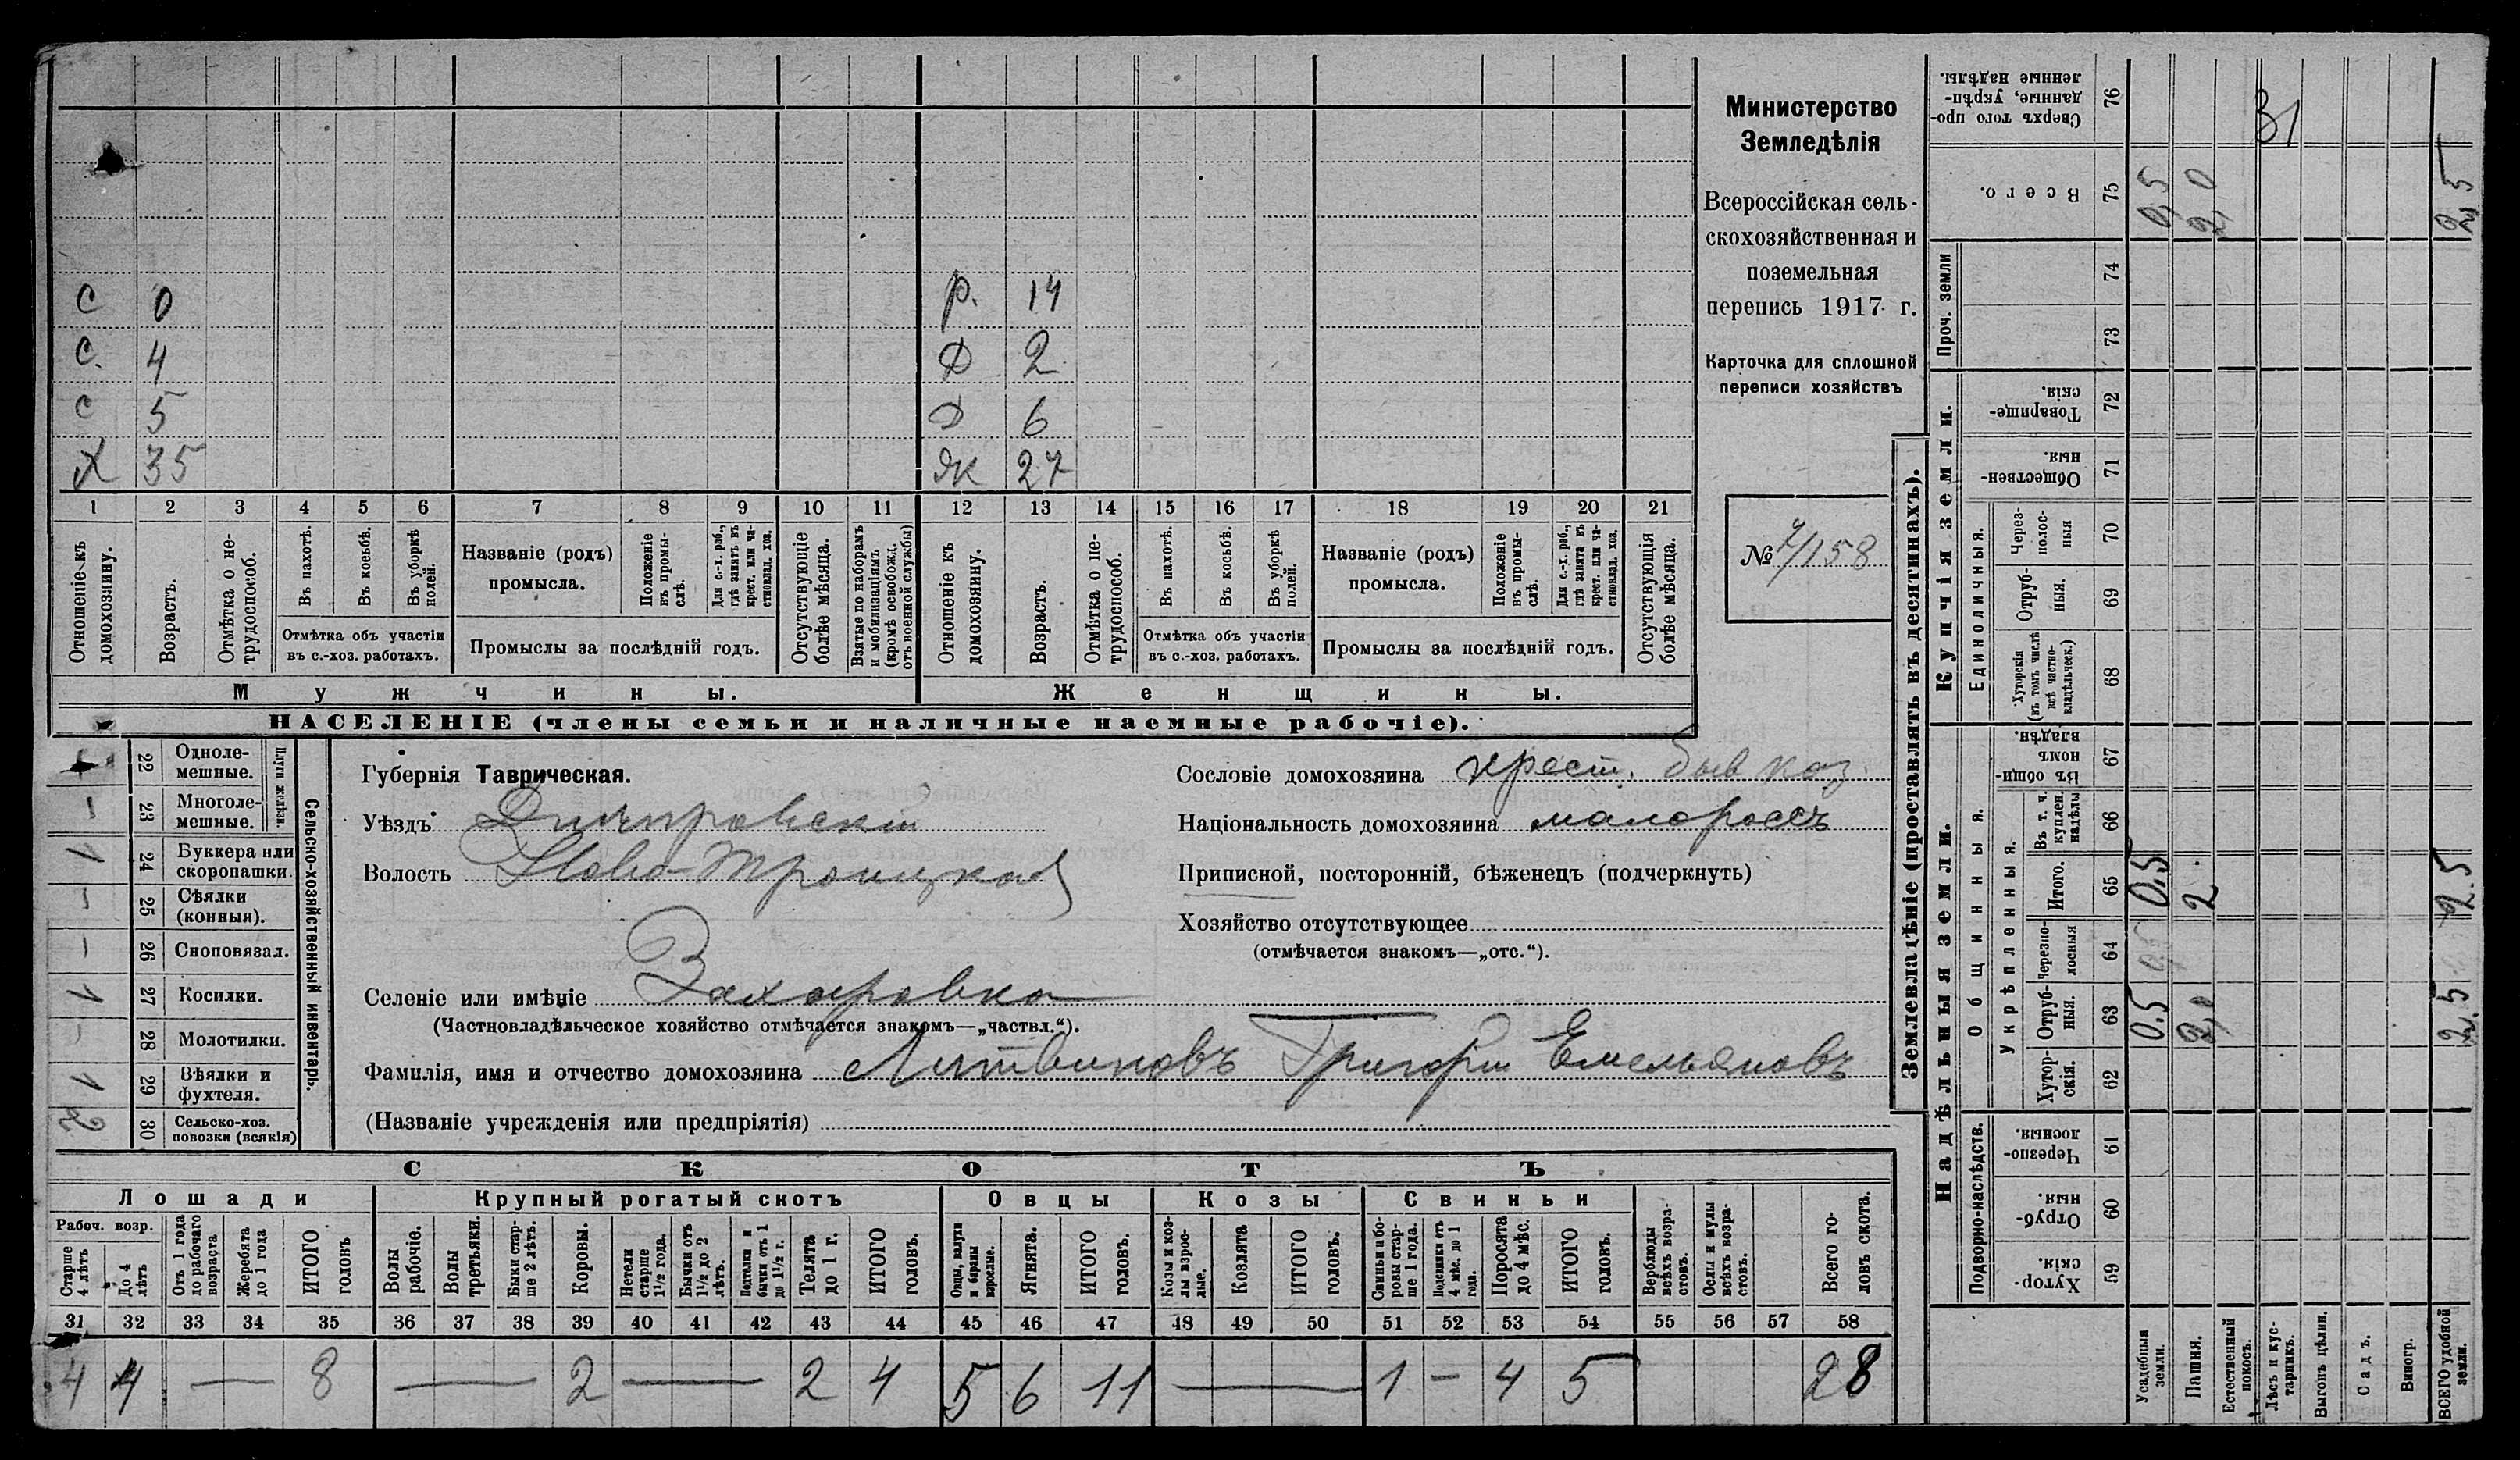 с 0 р. 14
с. 4 д 2
с 5 д 6
х 35 ж 27
1 2 3 4 5 6 7 8 9 10 11 12 13 14 15 16 17 18 19 20 21
Отношеніе къ домохозяину.
Возрастъ.
Отмѣтка о не-трудоспособ.
Въ пахотѣ.
Въ косьбѣ.
Въ уборкѣ полей.
Отмѣтка объ участіи
въ с.-хоз. работахъ.
Названіе (родъ)
промысла.
Положеніе въ промы-слѣ.
Для с.-х. раб., гдѣ занятъ въ крест. или ча-стновлад. хоз.
Промыслы за послѣдній годъ.
Отсутствующіе болѣе мѣсяца.
Взятые по наборамъ и мобилизаціямъ (кромѣ освобожд. отъ военной службы)
Отношеніе къ домохозяину.
Возрастъ.
Отмѣтка о не-трудоспособ.
Въ пахотѣ.
Въ косьбѣ.
Въ уборкѣ полей.
Отмѣтка объ участіи
въ с.-хоз. работахъ.
Названіе (родъ)
промысла.
Положеніе въ промы-слѣ.
Для с.-х. раб., гдѣ занята въ крест. или ча-стновлад. хоз.
Промыслы за послѣдній годъ.
Отсутствующія болѣе мѣсяца.
Мужчины.
Женщины.
НАСЕЛЕНІЕ (члены семьи и наличные наемные рабочіе).
Министерство
Земледѣлія
Всероссійская сель-
скохозяйственная и
поземельная
перепись 1917 г.
Карточка для сплошной
переписи хозяйствъ
№ 7/158
Сельско-хозяйственный инвентарь.
Плуги желѣзн.
22 Одноле-мешные.
– 23 Многоле-мешные.
1 24 Буккера или скоропашки.
– 25 Сѣялки (конныя).
– 26 Сноповязал.
1 27 Косилки.
– 28 Молотилки.
1 29 Вѣялки и фухтеля.
2 30 Сельско-хоз. повозки (всякія)
Губернія Таврическая.
Уѣздъ Днѣпровскій
Волость Ново-Троицкая
Селеніе или имѣніе Захаровка
(Частновладѣльческое хозяйство отмѣчается знакомъ—„частвл.“).
Сословіе домохозяина крест. быв каз.
Національность домохозяина малороссъ
Приписной, посторонній, бѣженецъ (подчеркнуть)
Хозяйство отсутствующее
(отмѣчается знакомъ—„отс.“).
Фамилія, имя и отчество домохозяина Литвиновъ Григорій Емельяновъ
(Названіе учрежденія или предпріятія)
СКОТЪ
Лошади Крупный рогатый скотъ Овцы Козы Свиньи
Рабоч. возр.
Старше 4 лѣтъ
До 4 лѣтъ
Отъ 1 года до рабочаго возраста
Жеребята до 1 года
ИТОГО головъ
Волы рабочіе.
Волы третьяки.
Быки стар-ше 2 лѣтъ.
Коровы.
Нетели старше 1½ года.
Бычки отъ 1½ до 2 лѣтъ.
Подтелки и бычки отъ 1 до 1½ г.
Телята до 1 г.
ИТОГО головъ.
Овцы, валухи и бараны взрослые.
Ягнята.
ИТОГО головъ.
Козы и коз-лы взрос-лые.
Козлята
ИТОГО головъ.
Свиньи и бо-ровы стар-ше 1 года.
Подсвинки отъ 4 мѣс. до 1 года.
Поросята до 4 мѣс.
ИТОГО головъ.
Верблюды всѣхъ возра-стовъ.
Ослы и мулы всѣхъ возра-стовъ.
Всего го-ловъ скота.
31 32 33 34 35 36 37 38 39 40 41 42 43 44 45 46 47 48 49 50 51 52 53 54 55 56 57 58
4 4 — 8 — 2 — 2 4 5 6 11 — 1 – 4 5 28
Землевладѣніе (проставлять въ десятинахъ).
Купчія земли.
Надѣльныя земли.
Проч. земли
Единоличныя.
Общинныя.
Укрѣпленныя.
Подворно-наслѣдств.
76 Сверхъ того про-данные, укрѣп-ленные надѣлы. 31
75 Всего. 0,5 2,0 2,5
74
73
72 Товарище-скія.
71 Обществен-ныя.
70 Через-полос-ныя
69 Отруб-ныя.
68 Хуторскія (въ томъ числѣ всѣ частно-владѣльческ.)
67 Въ общи-номъ владѣн.
66 Въ т. ч. куплен. надѣлы
65 Итого. 0,5 2. 2.5
64 Черезпо-лосныя
63 Отруб-ныя. 0.5 2,0 2.5
62 Хутор-скія.
61 Черезпо-лосныя.
60 Отруб-ныя.
59 Хутор-скія.
Усадебныя земли.
Пашня.
Естественный покосъ.
Лѣсъ и кус-тарникъ.
Выгонъ цѣлин.
Садъ.
Виногр.
ВСЕГО удобной земли.